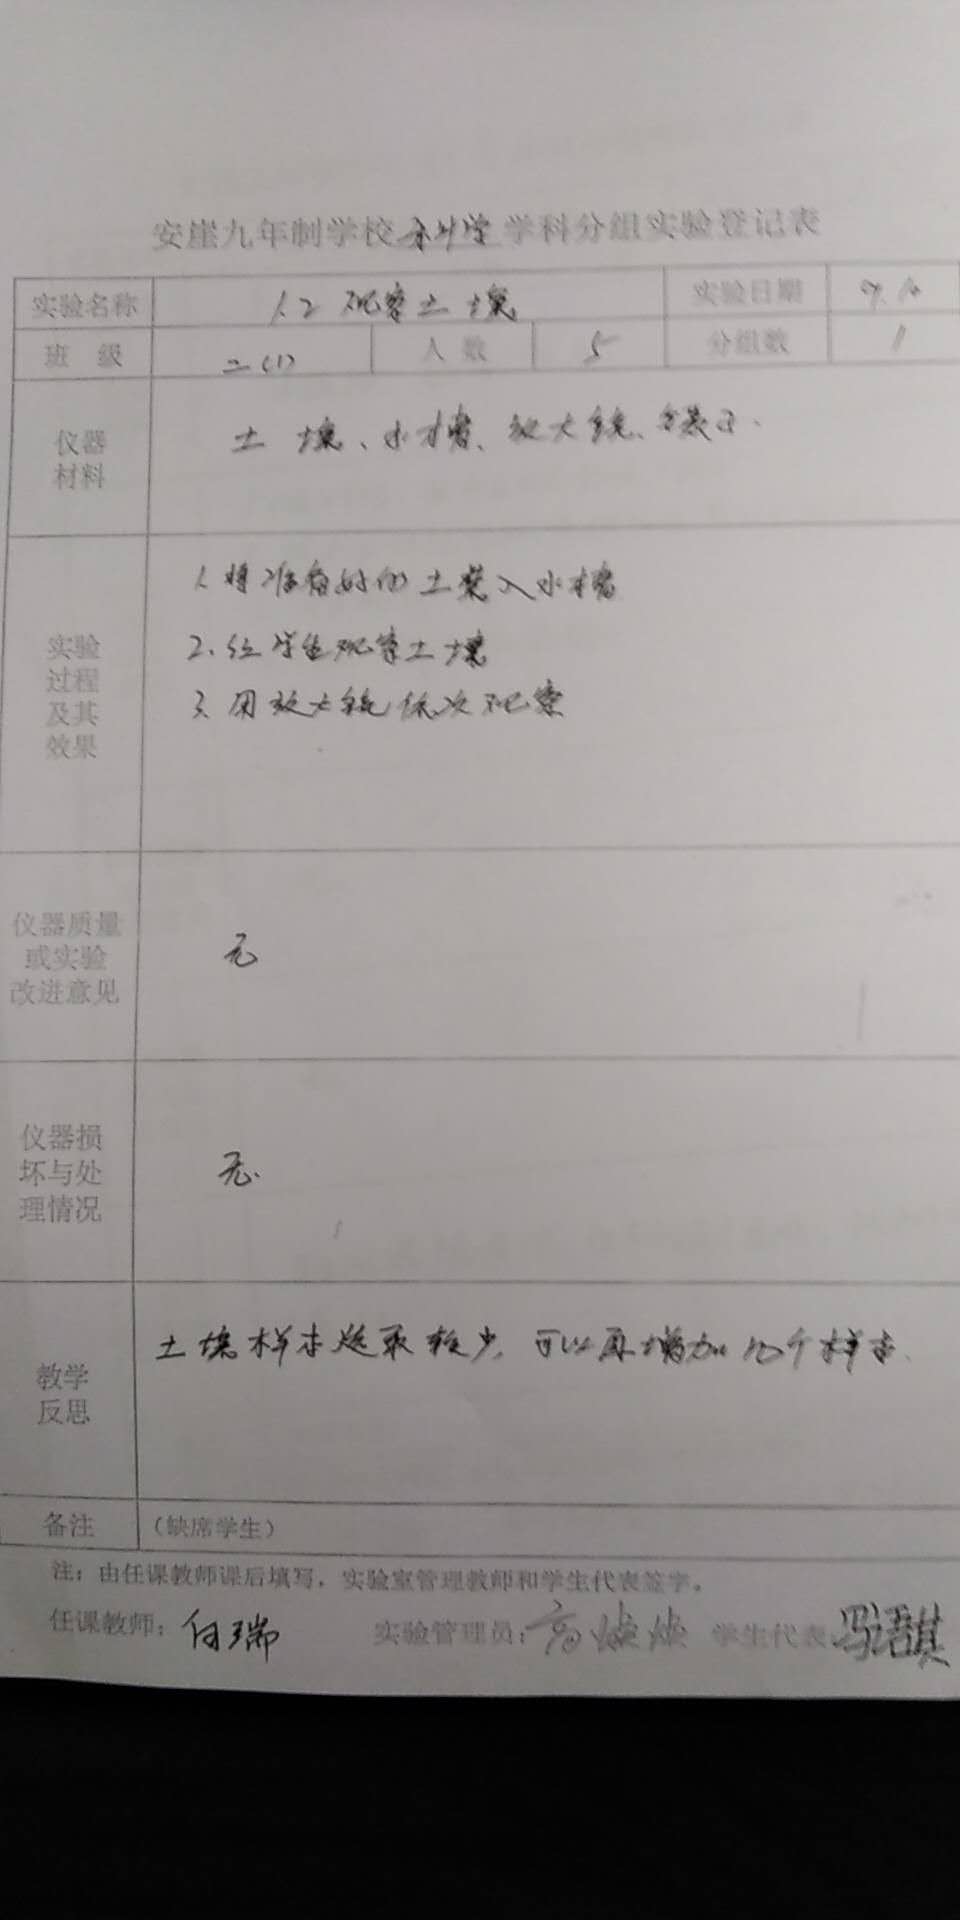 安崖九年制学校 科学 学科分组实验登记表
实验名称 1.2 观察土壤 实验日期 9.10
班 级 二(1) 人 数 5 分组数 1
仪器材料 土壤、水槽、放大镜、
实验过程及其效果
1. 将准备好的土装入水槽
2. 让学生观察土壤
3. 用放大镜依次观察
仪器质量或实验改进意见 无
仪器损坏与处理情况 无.
教学反思 土壤样本选取较少, 可以再增加几个样本.
备注 (缺席学生)
注：由任课教师课后填写，实验室管理教师和学生代表签字。
任课教师：何瑞 实验管理员：高 学生代表